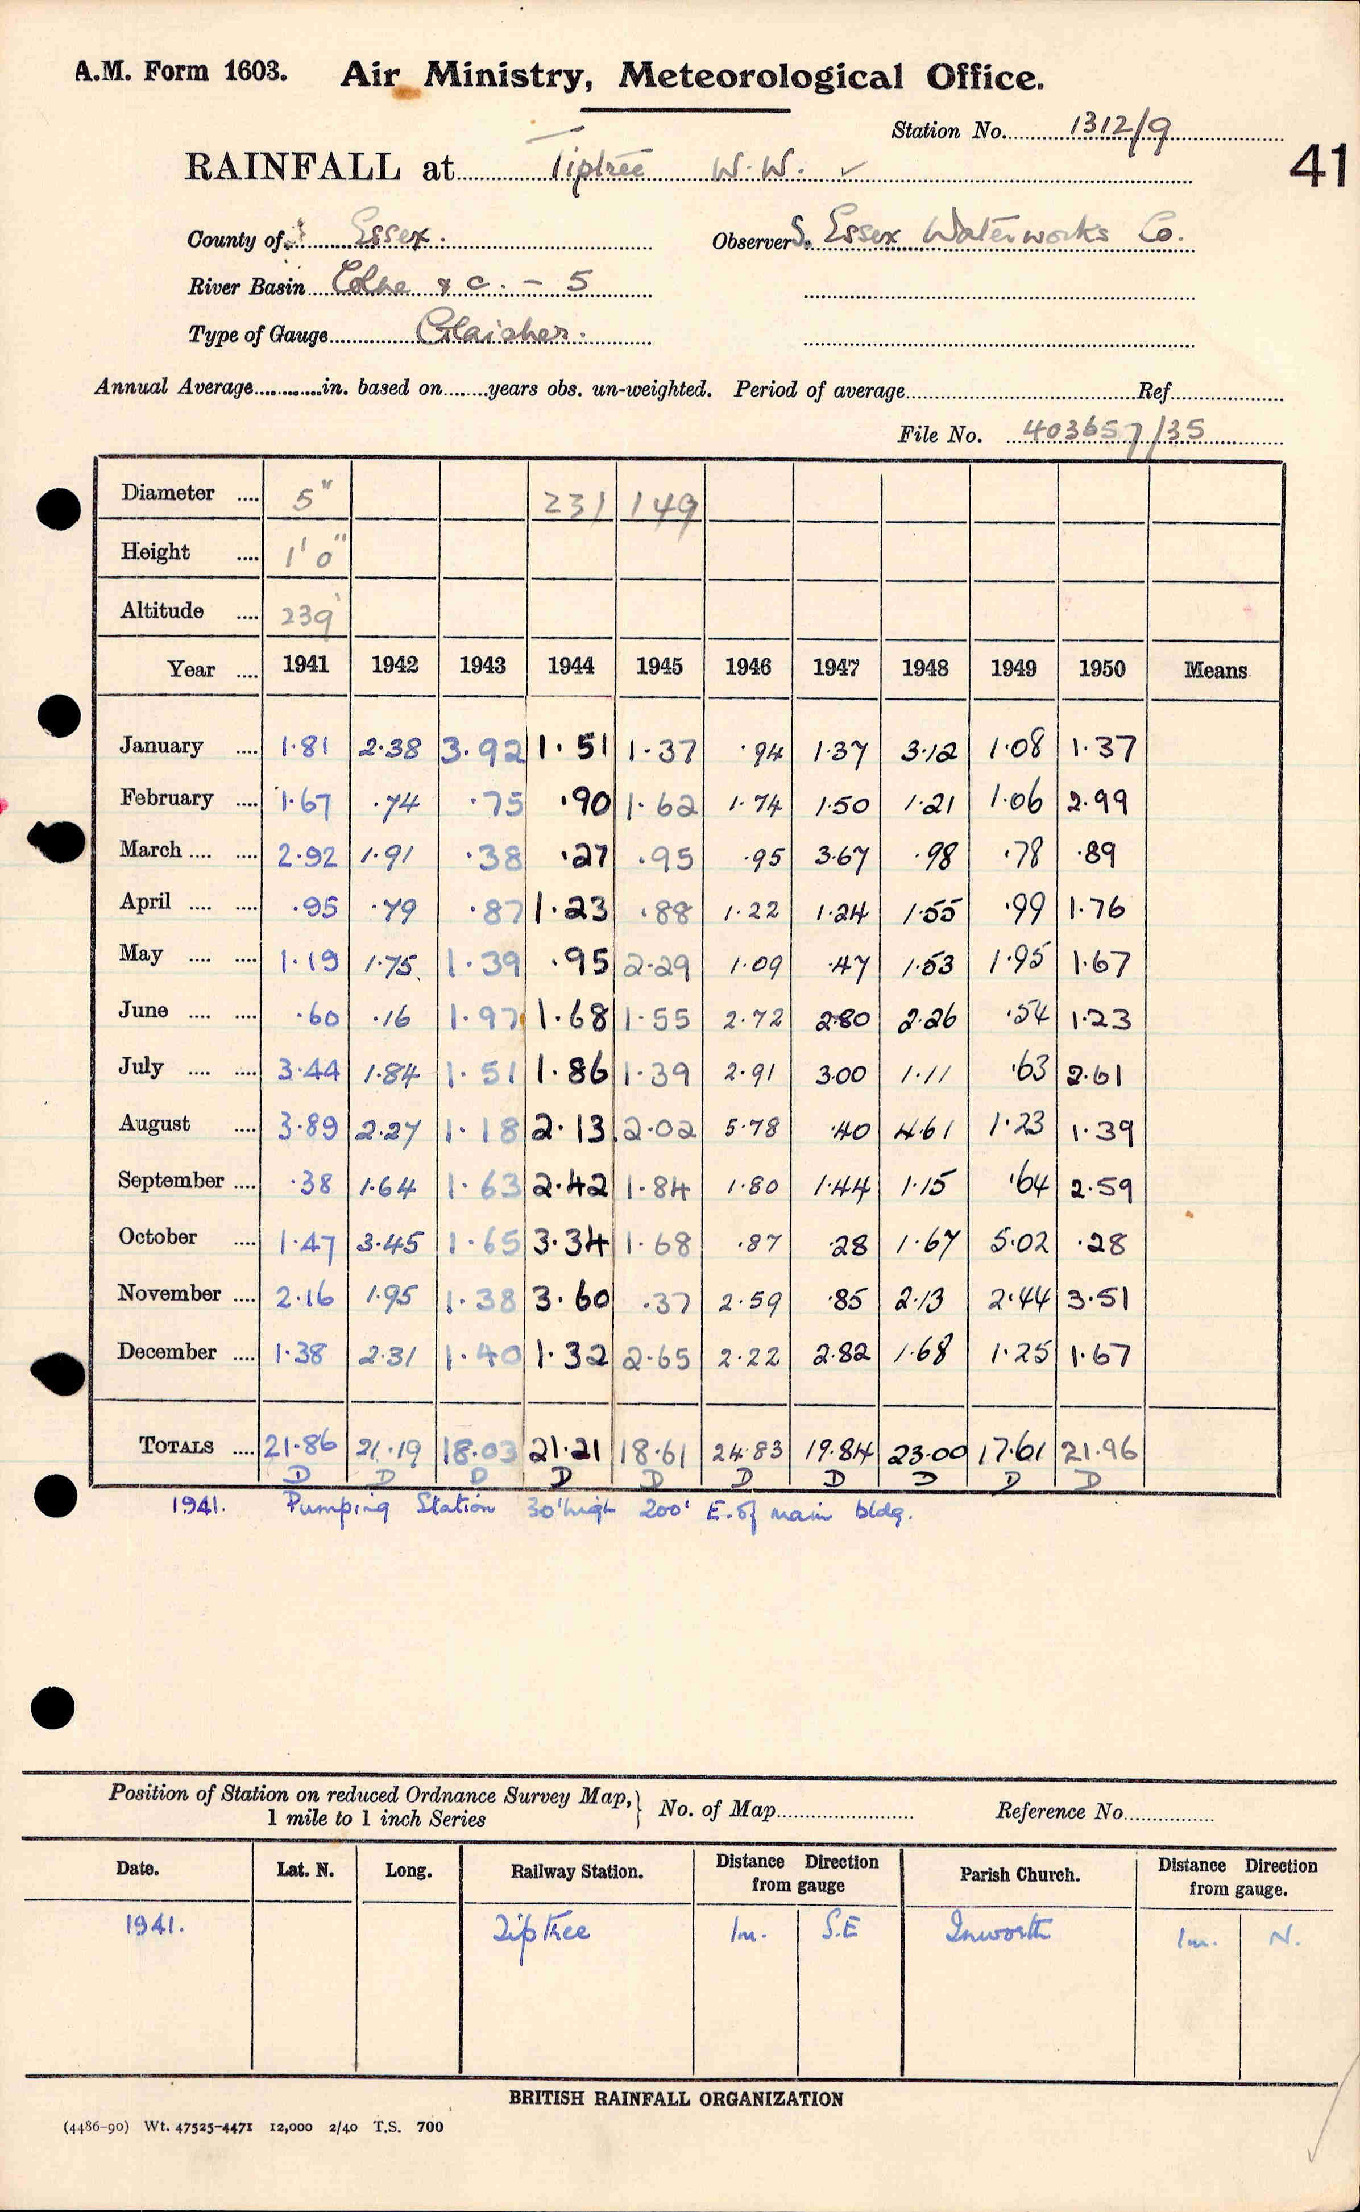 A.M. Form 1603. Air Ministry, Meteorological Office.
Station No. 1312/9
41
RAINFALL at Tiptree W.W. ✓
County of Essex. Observer S. Essex Waterworks Co.
River Basin Colne & c. - 5
Type of Gauge Glaisher.
Annual Average............in. based on........years obs. un-weighted. Period of average.......... Ref..........
File No. 403657/35
Diameter .... 5" 231 149
Height .... 1' 0"
Altitude .... 239'
Year .... 1941 1942 1943 1944 1945 1946 1947 1948 1949 1950 Means
January .... 1.81 2.38 3.92 1.51 1.37 .94 1.37 3.12 1.08 1.37
February .... 1.67 .74 .75 .90 1.62 1.74 1.50 1.21 1.06 2.99
March .... .... 2.92 1.91 .38 .27 .95 .95 3.67 .98 .78 .89
April .... .... .95 .79 .87 1.23 .88 1.22 1.24 1.55 .99 1.76
May .... .... 1.19 1.75 1.39 .95 2.29 1.09 .47 1.53 1.95 1.67
June .... .... .60 .16 1.97 1.68 1.55 2.72 2.80 2.26 .54 1.23
July .... .... 3.44 1.84 1.51 1.86 1.39 2.91 3.00 1.11 .63 2.61
August .... 3.89 2.27 1.18 2.13 2.02 5.78 .40 4.61 1.23 1.39
September .... .38 1.64 1.63 2.42 1.84 1.80 1.44 1.15 .64 2.59
October .... 1.47 3.45 1.65 3.34 1.68 .87 .28 1.67 5.02 .28
November .... 2.16 1.95 1.38 3.60 .37 2.59 .85 2.13 2.44 3.51
December .... 1.38 2.31 1.40 1.32 2.65 2.22 2.82 1.68 1.25 1.67
TOTALS .... 21.86 21.19 18.03 21.21 18.61 24.83 19.84 23.00 17.61 21.96
D D D D D D D D D D
1941. Pumping Station 30' high 200' E. of main bldg.
Position of Station on reduced Ordnance Survey Map, } No. of Map.......... Reference No..........
1 mile to 1 inch Series
Date. Lat. N. Long. Railway Station. Distance Direction from gauge Parish Church. Distance Direction from gauge.
1941. Tiptree 1m. S.E Inworth 1m. N.
BRITISH RAINFALL ORGANIZATION
(4486-90) Wt. 47525-4471 12,000 2/40 T.S. 700